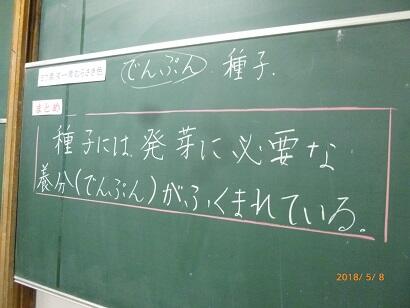 でんぷん 種子.
まとめ
種子には、発芽に必要な
養分(でんぷん)がふくまれている。
2018/5/8